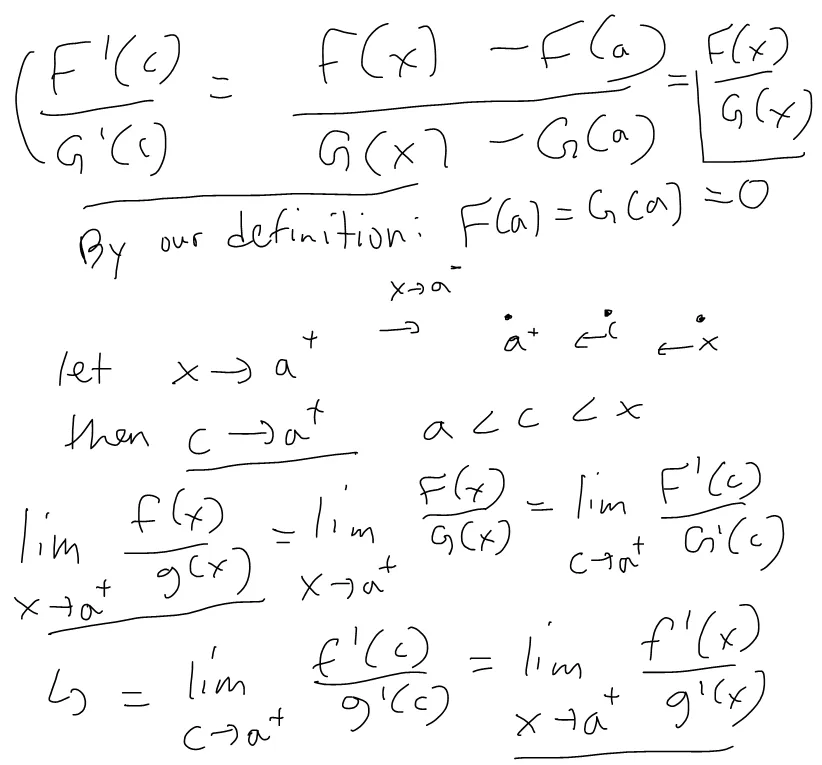 F'(c)/G'(c) = (F(x) - F(a))/(G(x) - G(a)) = F(x)/G(x)
By our definition: F(a) = G(a) = 0
x→a⁻
→ a⁺ ←c ←x
let x → a⁺
then c → a⁺ a < c < x
lim x→a⁺ f(x)/g(x) = lim x→a⁺ F(x)/G(x) = lim c→a⁺ F'(c)/G'(c)
↳ = lim c→a⁺ f'(c)/g'(c) = lim x→a⁺ f'(x)/g'(x)